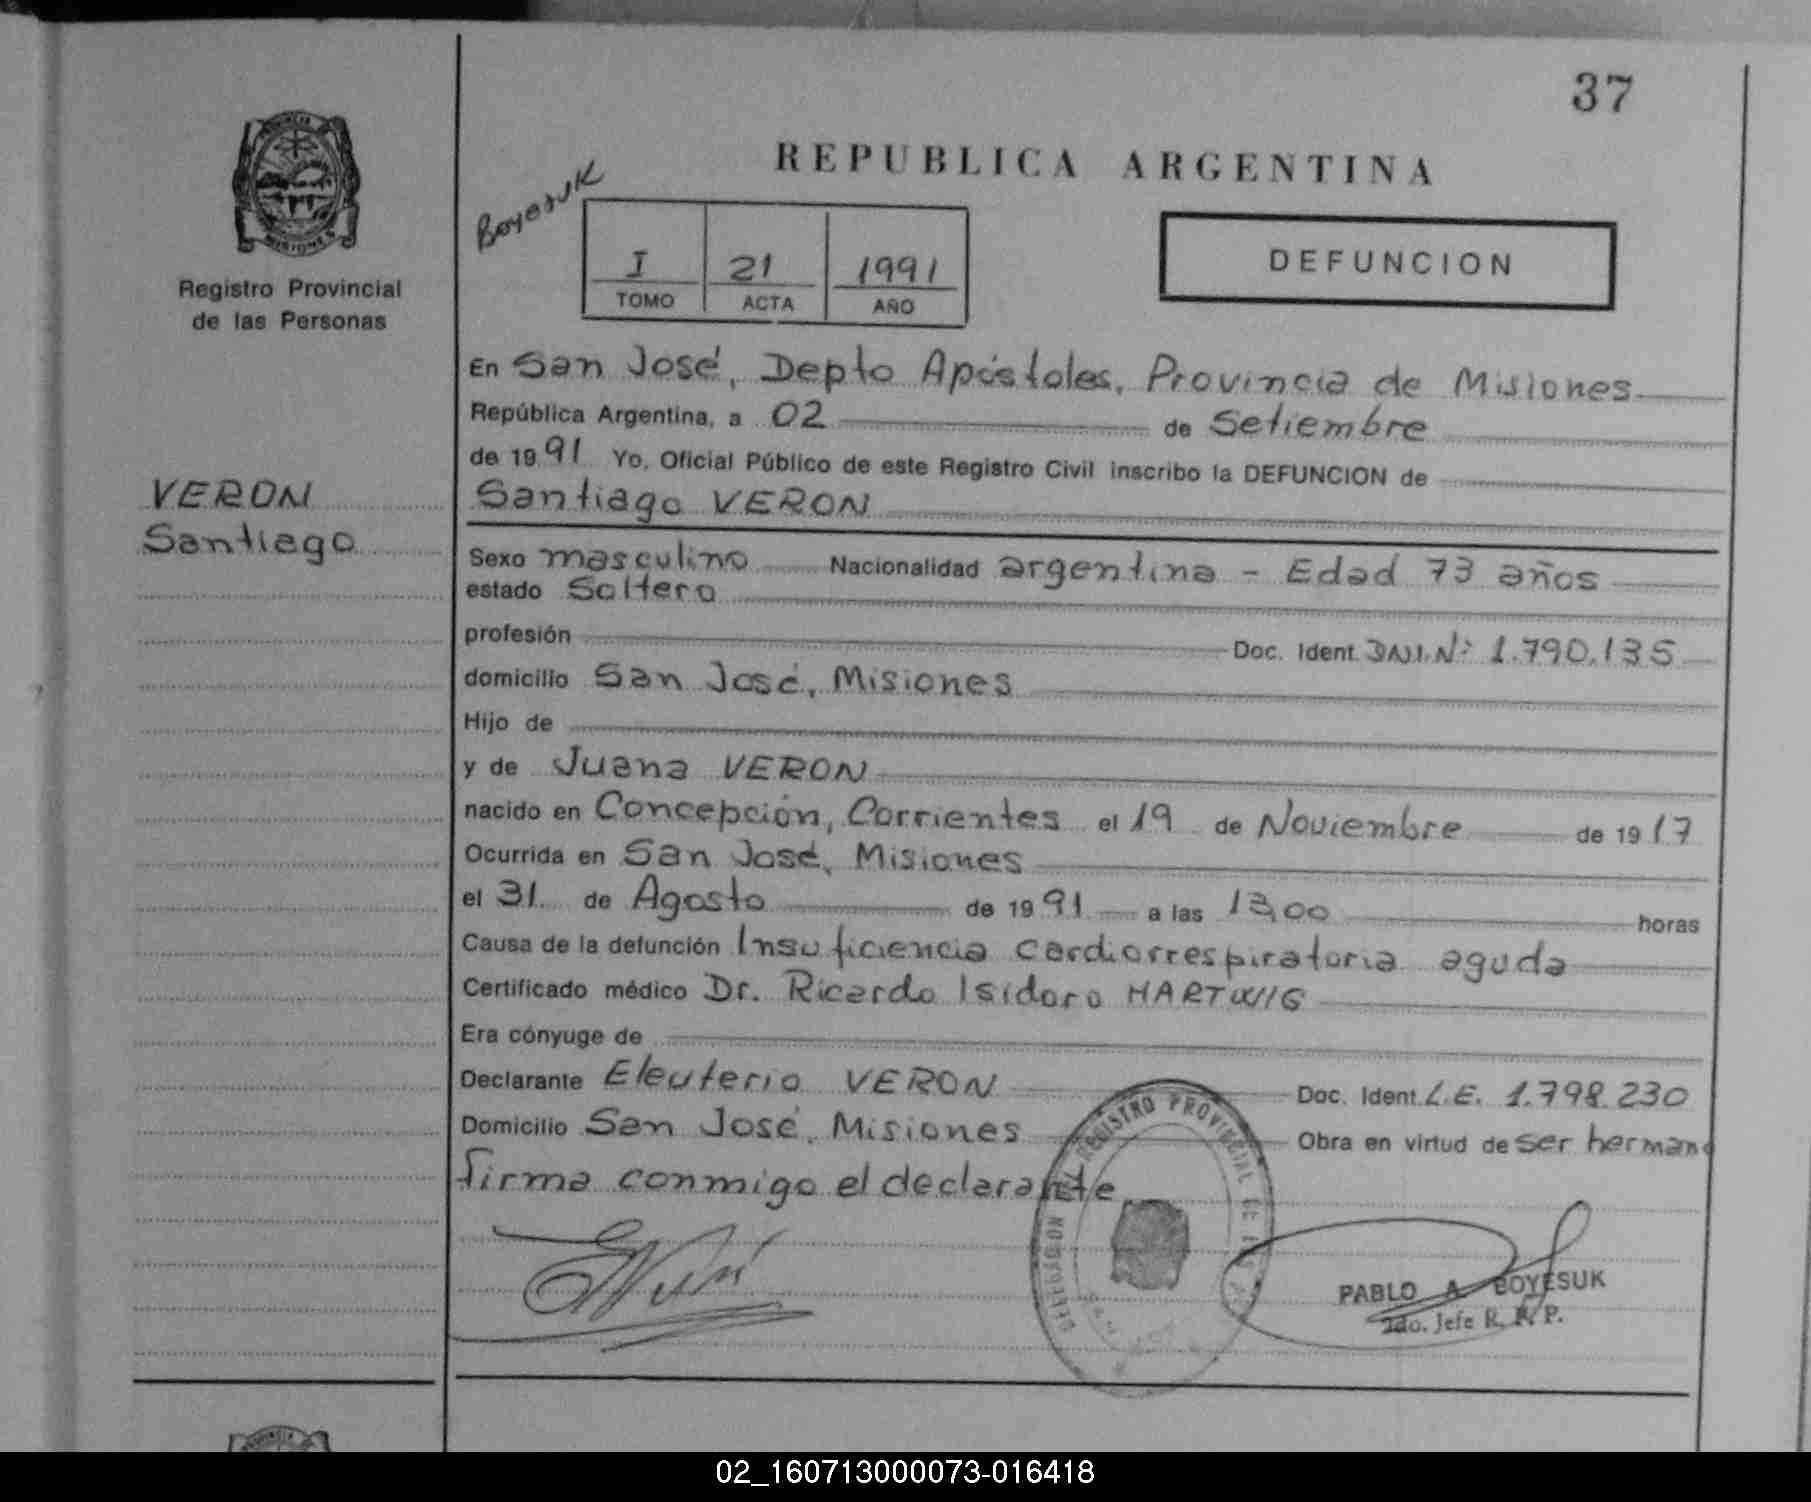 37
REPUBLICA ARGENTINA
Boyesuk
I 21 1991
TOMO ACTA AÑO
DEFUNCION
PROVINCIA
MISIONES
Registro Provincial
de las Personas
VERON
Santiago
En San José, Depto Apóstoles, Provincia de Misiones
República Argentina, a 02 de Setiembre
de 1991 Yo, Oficial Público de este Registro Civil inscribo la DEFUNCION de
Santiago VERON
Sexo masculino Nacionalidad argentina - Edad 73 años
estado Soltero
profesión Doc. Ident. DNI.Nº 1.790.135
domicilio San José, Misiones
Hijo de
y de Juana VERON
nacido en Concepción, Corrientes el 19 de Noviembre de 1917
Ocurrida en San José, Misiones
el 31 de Agosto de 1991 a las 13,00 horas
Causa de la defunción Insuficiencia cardiorrespiratoria aguda
Certificado médico Dr. Ricardo Isidoro HARTWIG
Era cónyuge de
Declarante Eleuterio VERON Doc. Ident. L.E. 1.798.230
Domicilio San José, Misiones Obra en virtud de ser hermano
firma conmigo el declarante
DELEGACION DEL REGISTRO PROVINCIAL DE
PABLO A BOYESUK
2do. Jefe R. P. P.
PROVINCIA
02_160713000073-016418